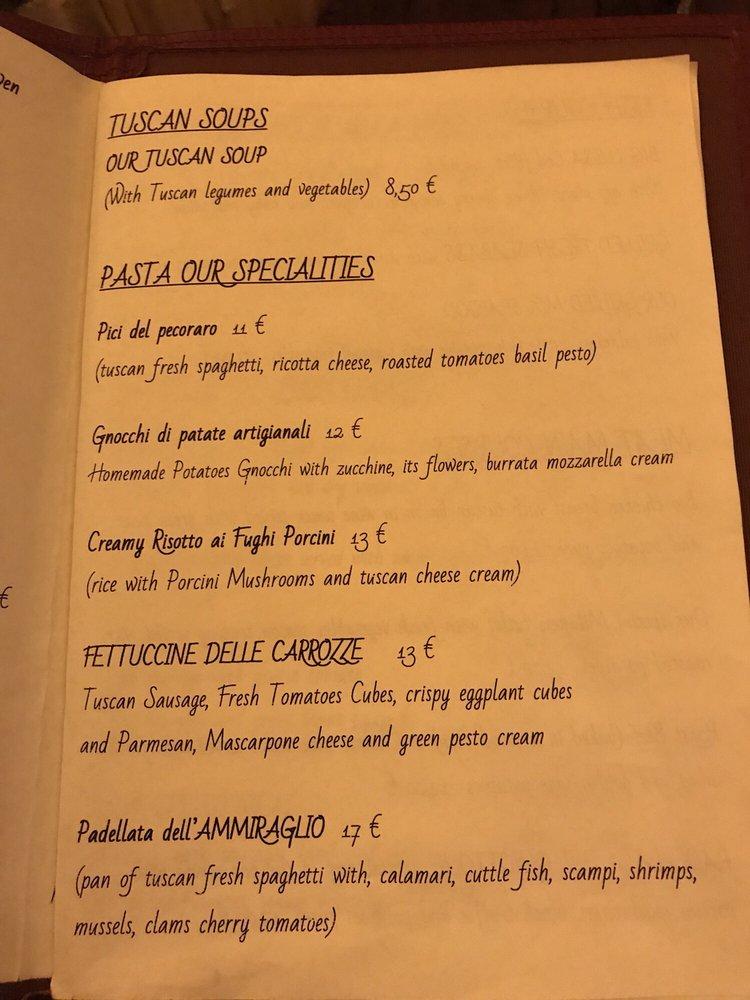 TUSCAN SOUPS
OUR TUSCAN SOUP
(With Tuscan legumes and vegetables) 8,50 €
PASTA OUR SPECIALITIES
Pici del pecoraro 11 €
(tuscan fresh spaghetti, ricotta cheese, roasted tomatoes basil pesto)
Gnocchi di patate artigianali 12 €
Homemade Potatoes Gnocchi with zucchine, its flowers, burrata mozzarella cream
Creamy Risotto ai Fughi Porcini 13 €
(rice with Porcini Mushrooms and tuscan cheese cream)
FETTUCCINE DELLE CARROZZE 13 €
Tuscan Sausage, Fresh Tomatoes Cubes, crispy eggplant cubes
and Parmesan, Mascarpone cheese and green pesto cream
Padellata dell'AMMIRAGLIO 17 €
(pan of tuscan fresh spaghetti with, calamari, cuttle fish, scampi, shrimps,
mussels, clams cherry tomatoes)
€